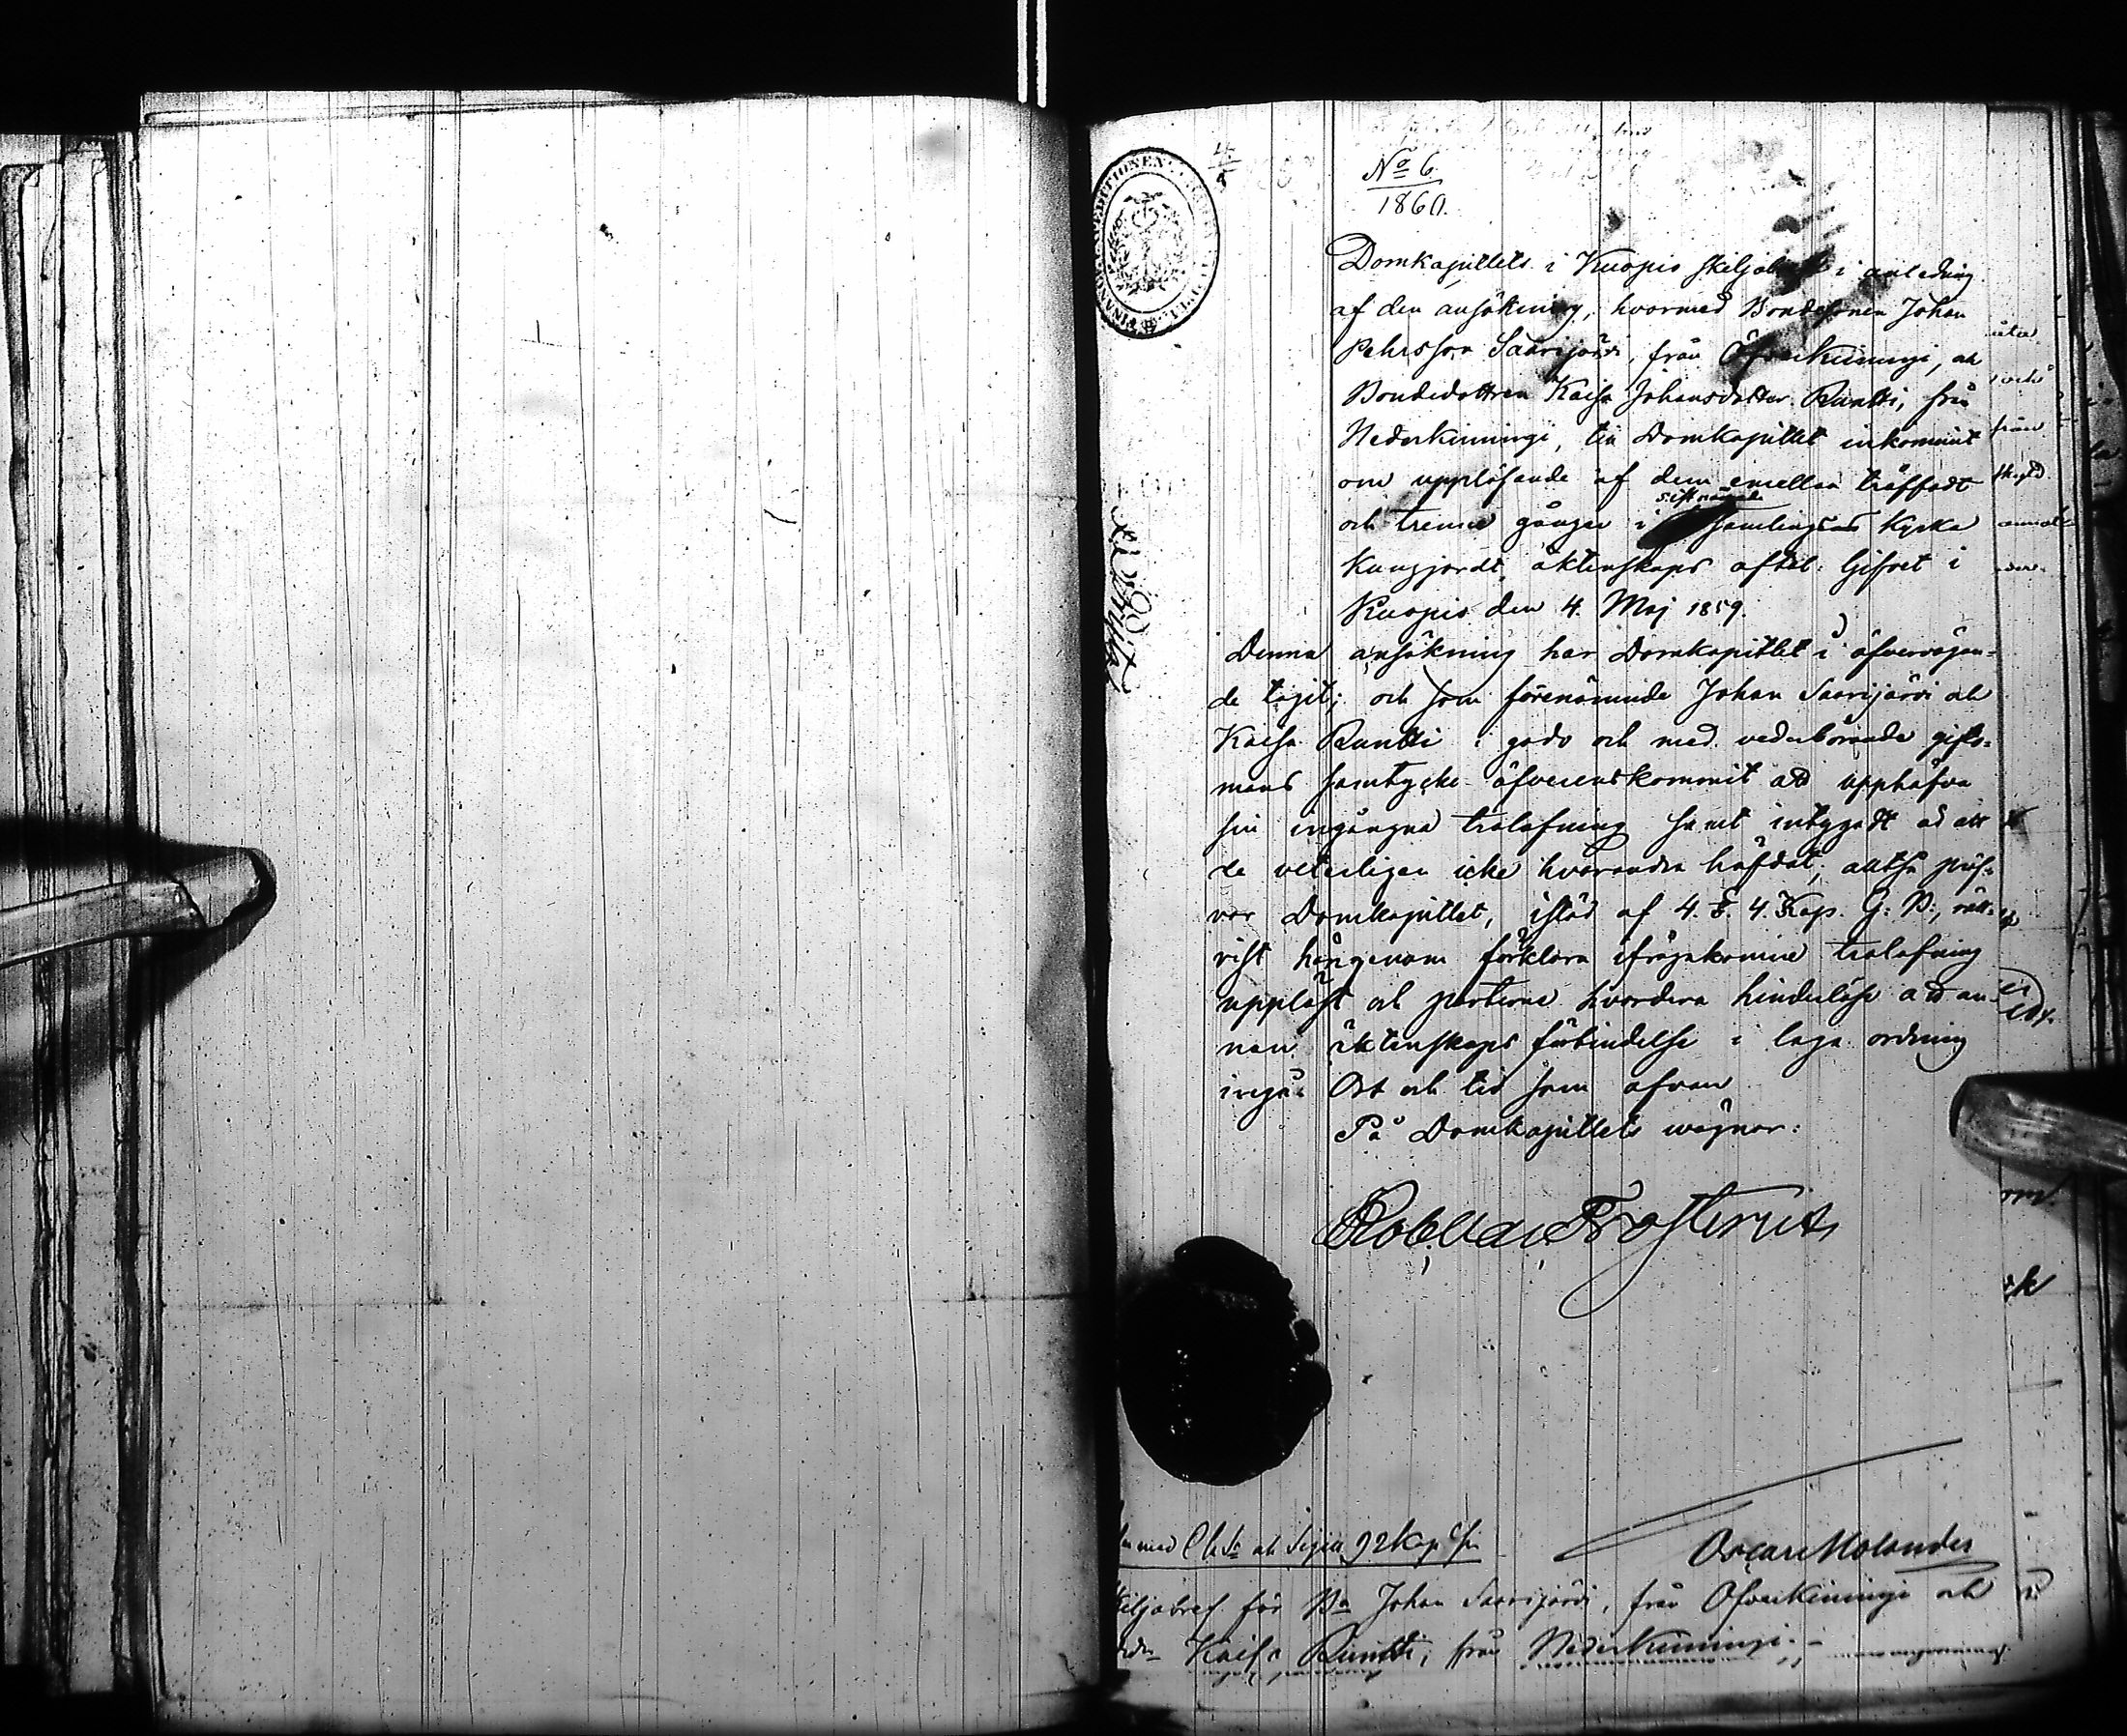 No 6.
1860.
Domkapitlets i Kuopio skiljobref i anledning
af den ansökning, hvarmed Bondesonen Johan
Pehrsson Saarijärvi, från Öfverkiimingi, och
Bondedottren Kaisa Johansdotter Runtti, från
Nederkimingi, till Domkapitlet inkommit
om upplösande af dem emellan träffadt
och trenne gånger i sistnämde församlingens Kyrka
kungjordt äktenskaps aftal. Gifvet i
Kuopio den 4. Maj 1859.
Denna ansökning har Domkapitlet i öfvervägan-
de tagit; och som förenämnde Johan Saarijärvi och
Kaisa Runtti i godo och med vederbörande gifto-
mans samtycke öfverenskommit att upphäfva
sin ingångna trolofning samt intygadt är att
de veterligen icke hvarandra häfdat, alltså pröf-
var Domkapitlet, i stöd af 4. §. 4. Kap. G: B:, rätt-
vist härigenom förklara ifrågakomne trolofning
upplöst och parterne hvardera hinderlöse att an-
nan äktenskaps förbindelse i laga ordning
ingå. Ort och tid som ofvan.
På Domkapitlets wägnar:
Rob. Val. Frosterus
Oscar Molander
med Ch. S. och Sigill 92 Kop. S:r
Skiljobref för B Johan Saarijärvi, från Öfverkiimingi och
Kaisa Runtti, från Nederkiimingi.